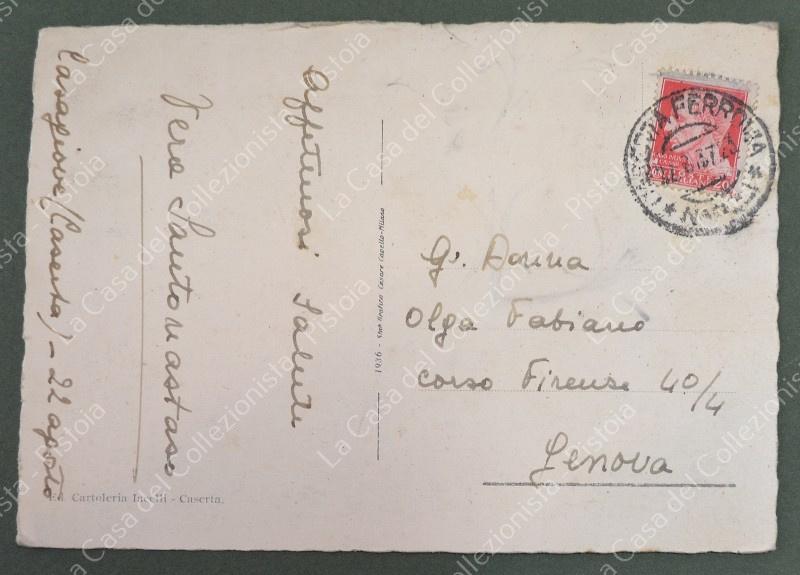 Casagiove (Caserta) - 22 agosto
Vera Santomastaso
Affettuosi Saluti
Ed. Cartoleria Iacelli - Caserta.
1936 - Stab Grafico Cesare Capello-Milano
G. Donna
Olga Fabiano
corso Firenze 40/4
Genova
FERROVIA
NAPOLI
La Casa del Collezionista - Pistoia